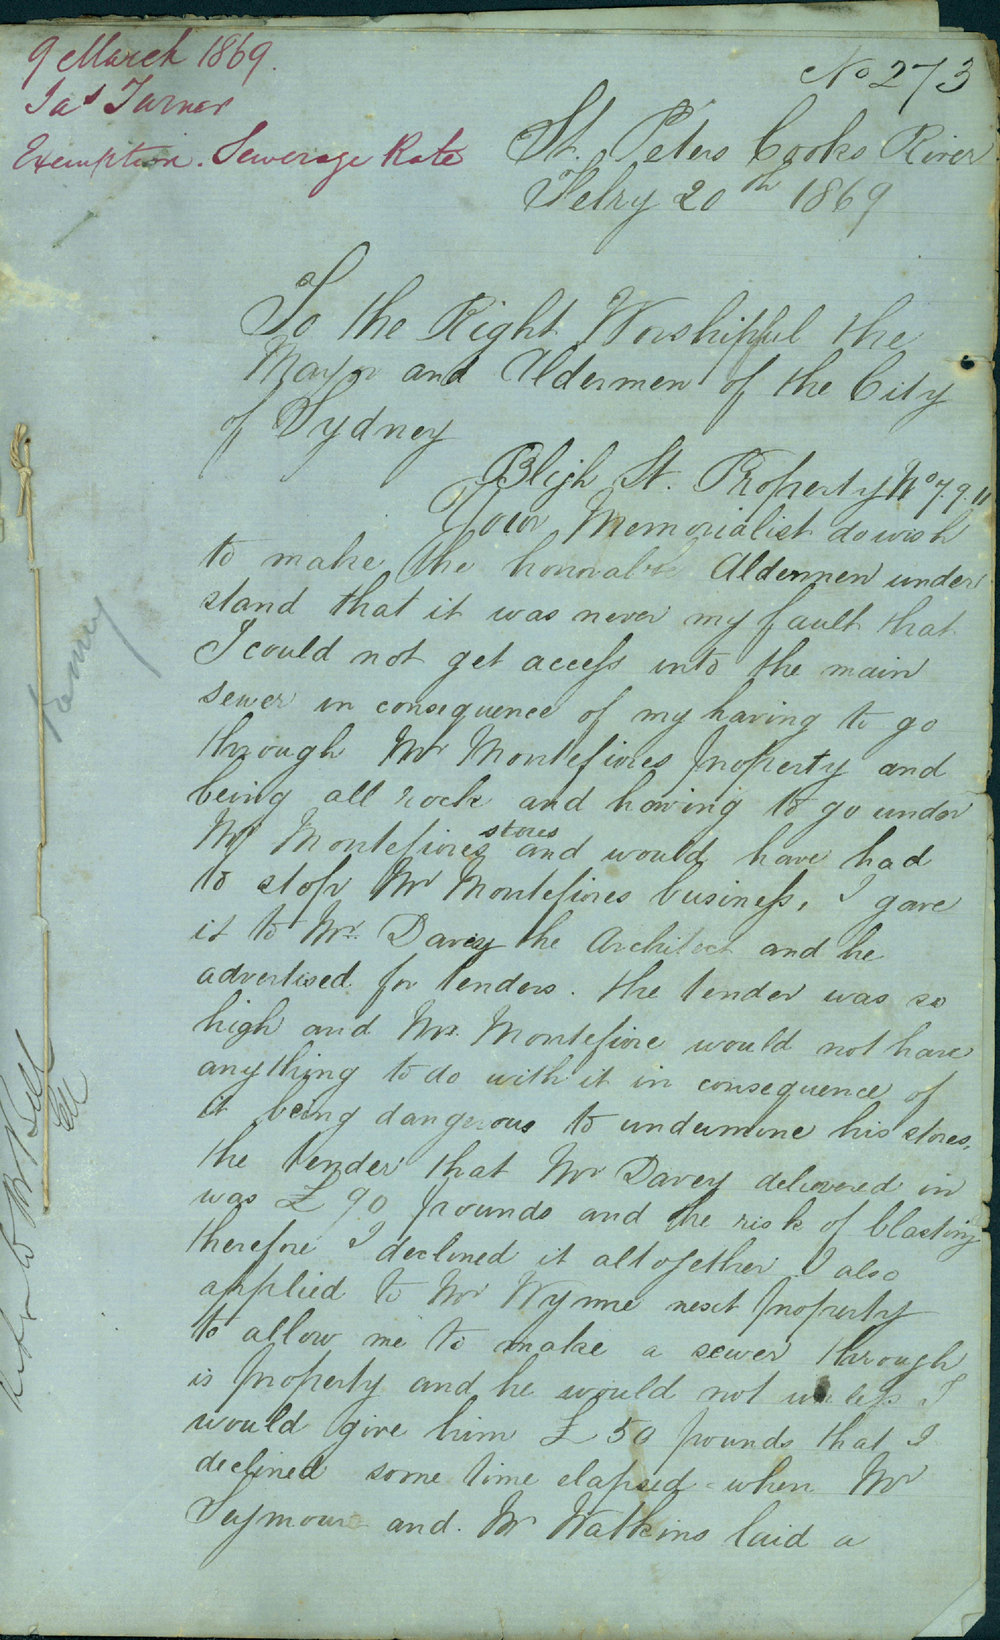 9 March 1869.
Jas Turner
Exemption. Sewerage Rate
No 273
St. Peters Cooks River
Febry 20th 1869
To the Right Worshipful the
Mayor and Aldermen of the City
of Sydney
Bligh St. Property No 7. 9. 11
Your Memorialist do wish
to make the honorable Aldermen under
stand that it was never my fault that
I could not get access into the main
sewer in consequence of my having to go
through Mr Montefiores property and
being all rock and having to go under
Mr Montefiores stores and would have had
to stop Mr Montefiores business, I gave
it to Mr. Davey the Architect and he
advertised for tenders. the tender was so
high and Mr. Montefiore would not have
anything to do with it in consequence of
it being dangerous to undermine his stores,
the tender that Mr Davey delivered in
was £90 pounds and the risk of blasting
therefore I declined it altogether I also
applied to Mr Wynne next property
to allow me to make a sewer through
is property and he would not unless I
would give him £50 pounds that I
declined some time elapsed when Mr
Seymour and. Mr Watkins laid a